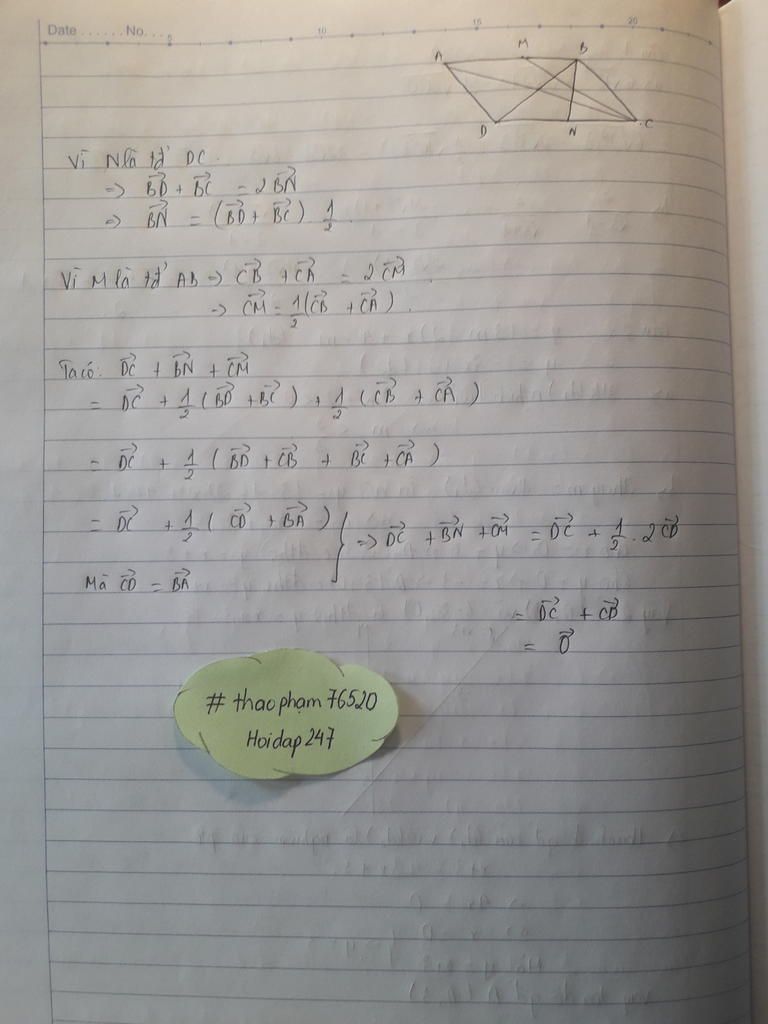 Date ...... No. ...
5 10 15 20
A M B
D N C
Vì N là tđ' DC.
=> BD→ + BC→ = 2BN→
=> BN→ = (BD→ + BC→) 1/2.
Vì M là tđ' AB => CB→ + CA→ = 2CM→
=> CM→ = 1/2(CB→ + CA→).
Ta có: DC→ + BN→ + CM→
= DC→ + 1/2 (BD→ + BC→) + 1/2 (CB→ + CA→)
= DC→ + 1/2 (BD→ + CB→ + BC→ + CA→)
= DC→ + 1/2 (CD→ + BA→) } => DC→ + BN→ + CM→ = DC→ + 1/2 . 2CD→
Mà CD→ = BA→
= DC→ + CD→
= 0→
# thaophạm76520
Hoidap247